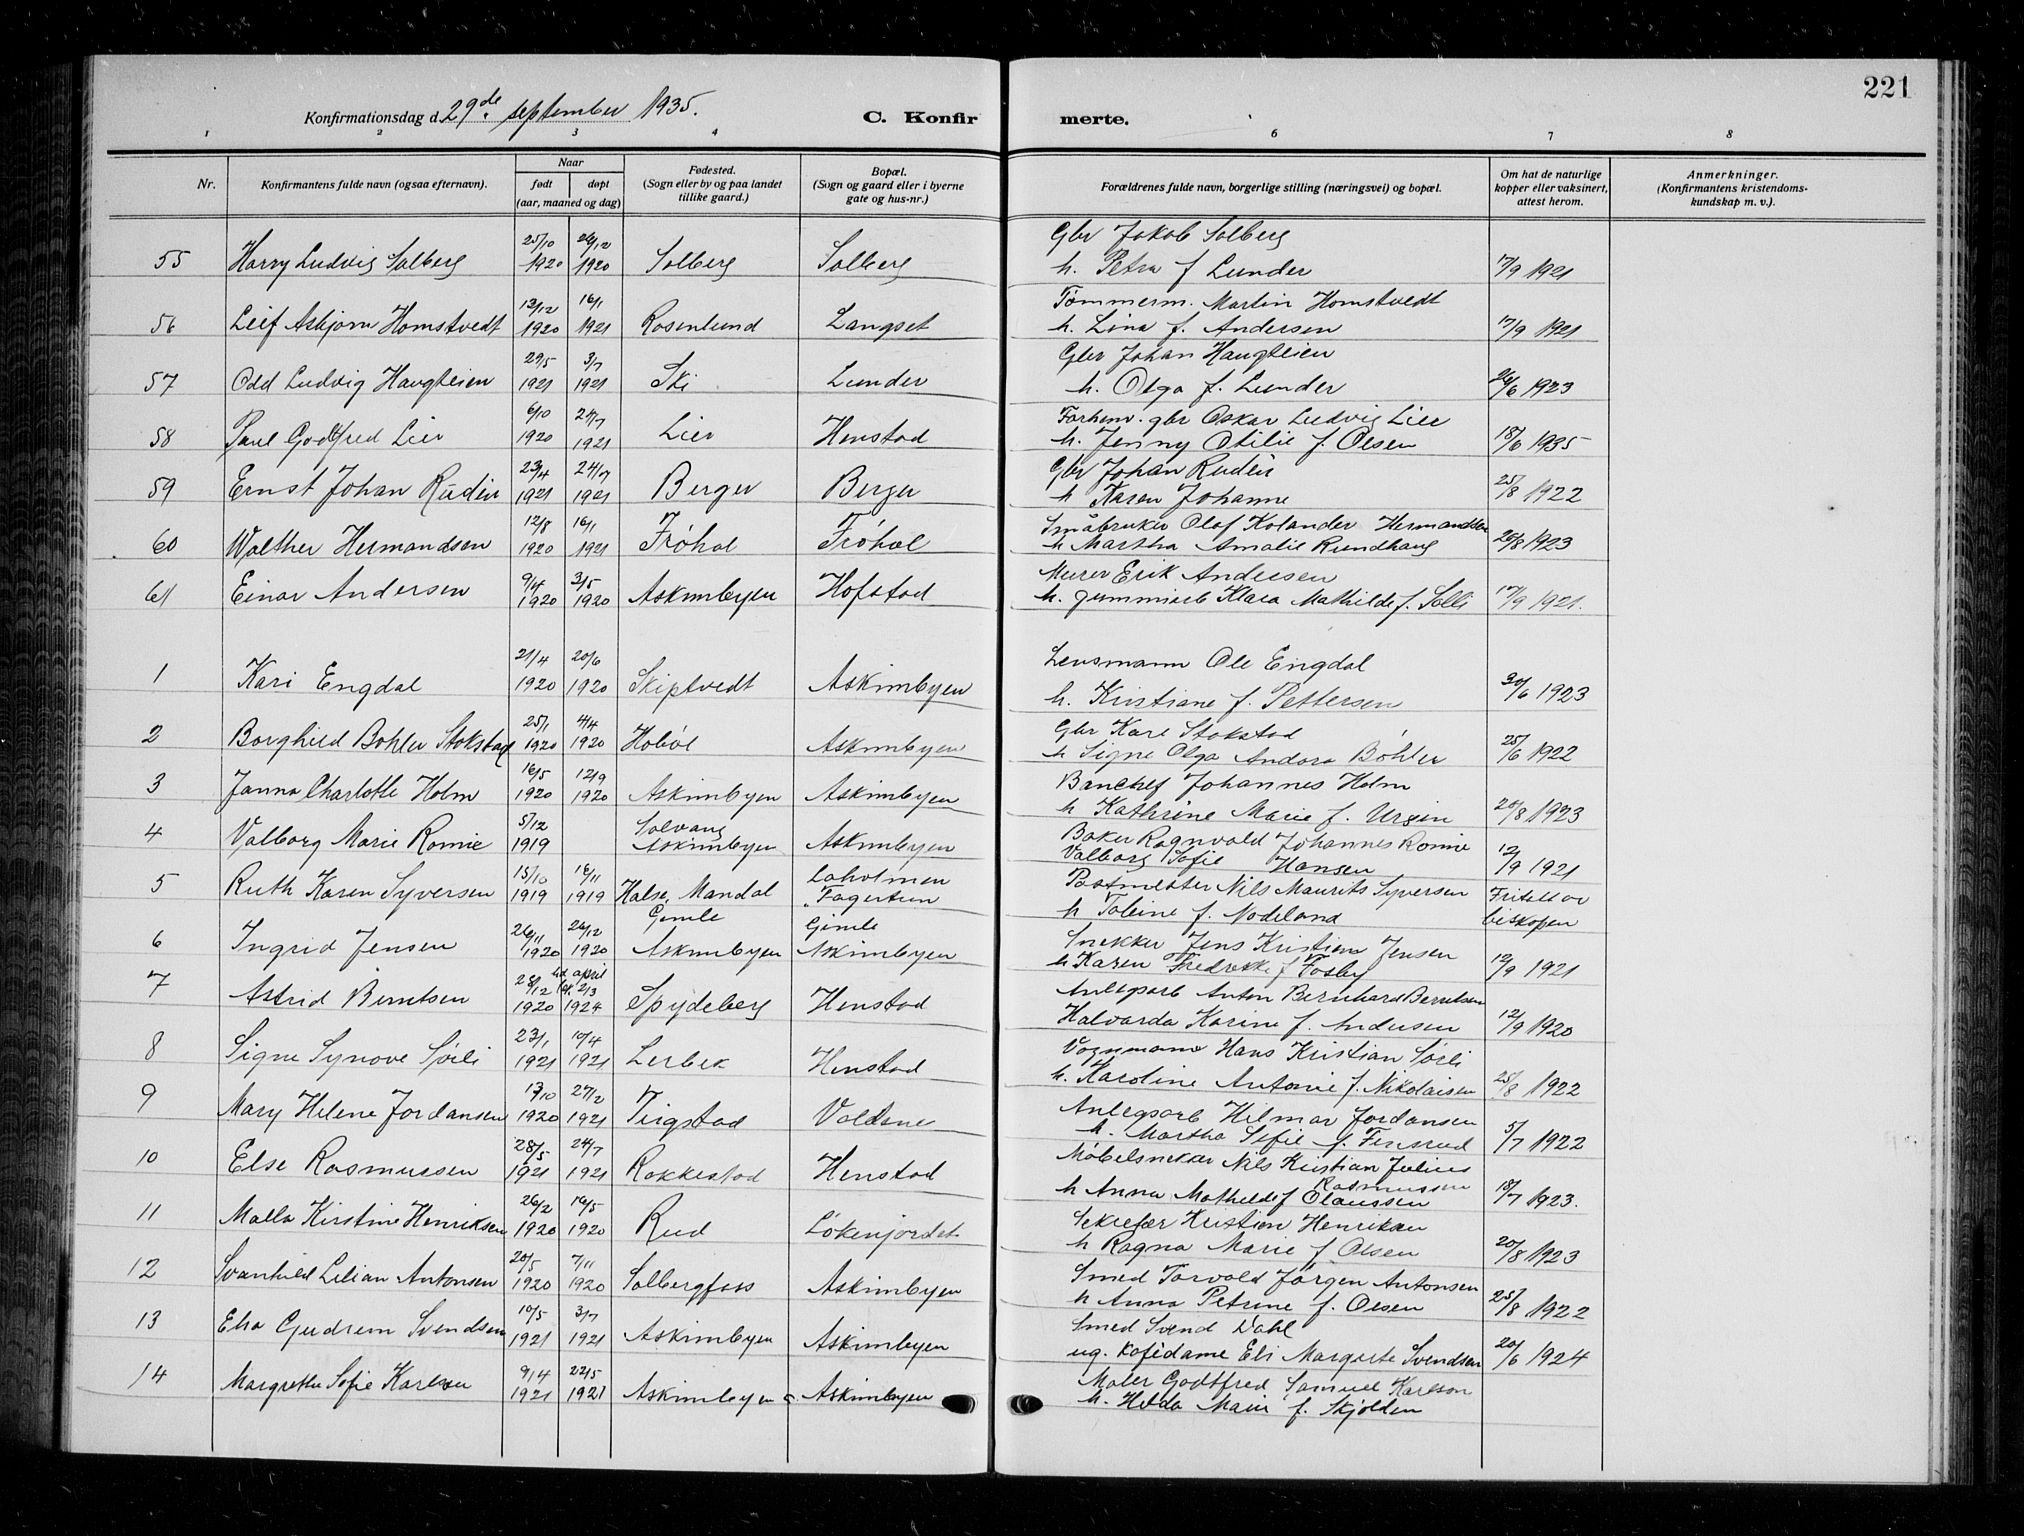 221
Konfirmationsdag d. 29de september 1935.
C. Konfirmerte.
1 2 3 4 6 7 8
Nr. Konfirmantens fulde navn (ogsaa efternavn). Naar født døpt (aar, maaned og dag) Fødested. (Sogn eller by og paa landet tillike gaard.) Bopæl. (Sogn og gaard eller i byerne gate og hus-nr.) Forældrenes fulde navn, borgerlige stilling (næringsvei) og bopæl. Om hat de naturlige kopper eller vaksinert, attest herom. Anmerkninger. (Konfirmantens kristendomskundskap m. v.).
55 Harry Ludvig Solberg 25/10 1920 26/12 1920 Solberg Solberg Gbr Jakob Solberg
h. Petra f Lunder 17/9 1921
56 Leif Asbjørn Homstvedt 13/12 1920 16/1 1921 Rosenlund Langset Tømmerm. Martin Homstvedt
h. Lina f. Andersen 17/9 1921
57 Odd Ludvig Haugteien 29/5 1921 3/7 1921 Ski Lunder Gbr Johan Haugteien
h. Olga f. Lunder 26/6 1923
58 Paul Godtfred Lier 6/10 1920 24/7 1921 Lier Henstad Forhenv. gbr Oskar Ludvig Lier
h. Jenny Otilie f. Olsen 18/6 1935
59 Ernst Johan Rudin 23/4 1921 24/7 1921 Berger Berger Gbr Johan Rudin
h Karen Johanne 25/8 1922
60 Walther Hermandsen 12/8 1920 16/1 1921 Frøhol Frøhol Småbruker Olaf Kolander Hermandsen
h Martha Amalie Rundhaug 26/8 1923
61 Einar Andersen 9/4 1920 3/5 1920 Askimbyen Hofstad Murer Erik Andersen
h. gummiarb Klara Mathilde f. Solli 17/9 1921.
1 Kari Engdal 21/4 1920 20/6 1920 Skiptvedt Askimbyen Lensmann Ole Engdal
h. Kristiane f. Pettersen 30/6 1923
2 Borghild Bøhler Stokstad 25/1 1920 4/4 1920 Hobøl Askimbyen Gbr Karl Stokstad
h Signe Olga Andora Bøhler 25/6 1922
3 Janna Charlotte Holm 16/5 1920 12/9 1920 Askimbyen Askimbyen Banchef Johannes Holm
h Kathrine Marie f. Ursin 20/8 1923
4 Valborg Marie Romie 5/12 1919 Solvang Askimbyen Askimbyen Baker Ragnvald Johannes Romie
Valborg Sofie Hansen 12/9 1921
5 Ruth Karen Syversen 15/10 1919 16/11 1919 Halse, Mandal Laholmen Fagertun Postmester Nils Maurits Syversen
h Tobine f. Nodeland Fritatt av biskopen
6 Ingrid Jensen 26/11 1920 26/12 1920 Gimle Askimbyen Gimle Askimbyen Snekker Jens Kristian Jensen
h Karen Fredrikke f Fosby 12/9 1921
7 Astrid Berntsen 28/12 1920 april 2/3 1924 Spydeberg Henstad Anlegsarb Anton Bernhard Berntsen
Halvarda Karine f. Andersen 12/9 1920
8 Signe Synøve Sørli 23/1 1921 10/4 1921 Lerbek Henstad Vognmann Hans Kristian Sørli
h. Karoline Antonie f. Nikolaisen 25/8 1922
9 Mary Helene Jordansen 13/10 1920 27/2 1921 Tirgstad Voldene Anlegsarb Hilmar Jordansen
h. Martha Sofie f. Finsrud 5/7 1922
10 Else Rasmussen 28/5 1921 24/7 1921 Rakkestad Henstad Møbelsnekker Nils Kristian Julius Rasmussen
h Anna Mathilde f Olaussen 18/7 1923.
11 Malla Kirstine Henriksen 26/2 1920 16/5 1920 Rud Løkenjordet Sekretær Kristian Henriksen
h Ragna Marie f Olsen 20/8 1923
12 Svanhild Lilian Antonsen 20/5 1920 7/11 1920 Solbergfoss Askimbyen Smed Torvald Jørgen Antonsen
h Anna Petrine f. Olsen 25/8 1922
13 Elsa Gudrun Svendsen 10/5 1921 3/7 1921 Askimbyen Askimbyen Smed Svend Dahl
ug. kafédame Eli Margarte Svendsen 20/6 1924
14 Margrethe Sofie Karlson 9/4 1921 22/5 1921 Askimbyen Askimbyen Maler Godtfred Samuel Karlson
h. Hilda Marie f. Skjolden